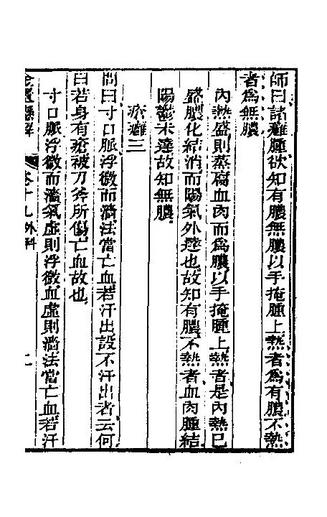 師曰諸癰腫欲知有膿無膿以手掩腫上熱者為有膿不熱
者為無膿
內熱盛則蒸腐血肉而為膿以手掩腫上熱者是內熱已
盛膿化結消而陽氣外達也故知有膿不熱者血肉腫結
陽鬱未達故知無膿
瘀癰三
問曰寸口脈浮微而濇法當亡血若汗出設不汗出者云何
曰若身有瘡被刀斧所傷亡血故也
寸口脈浮微而濇氣虛則浮微血虛則濇法當亡血若汗
金匱懸解 卷十九外科